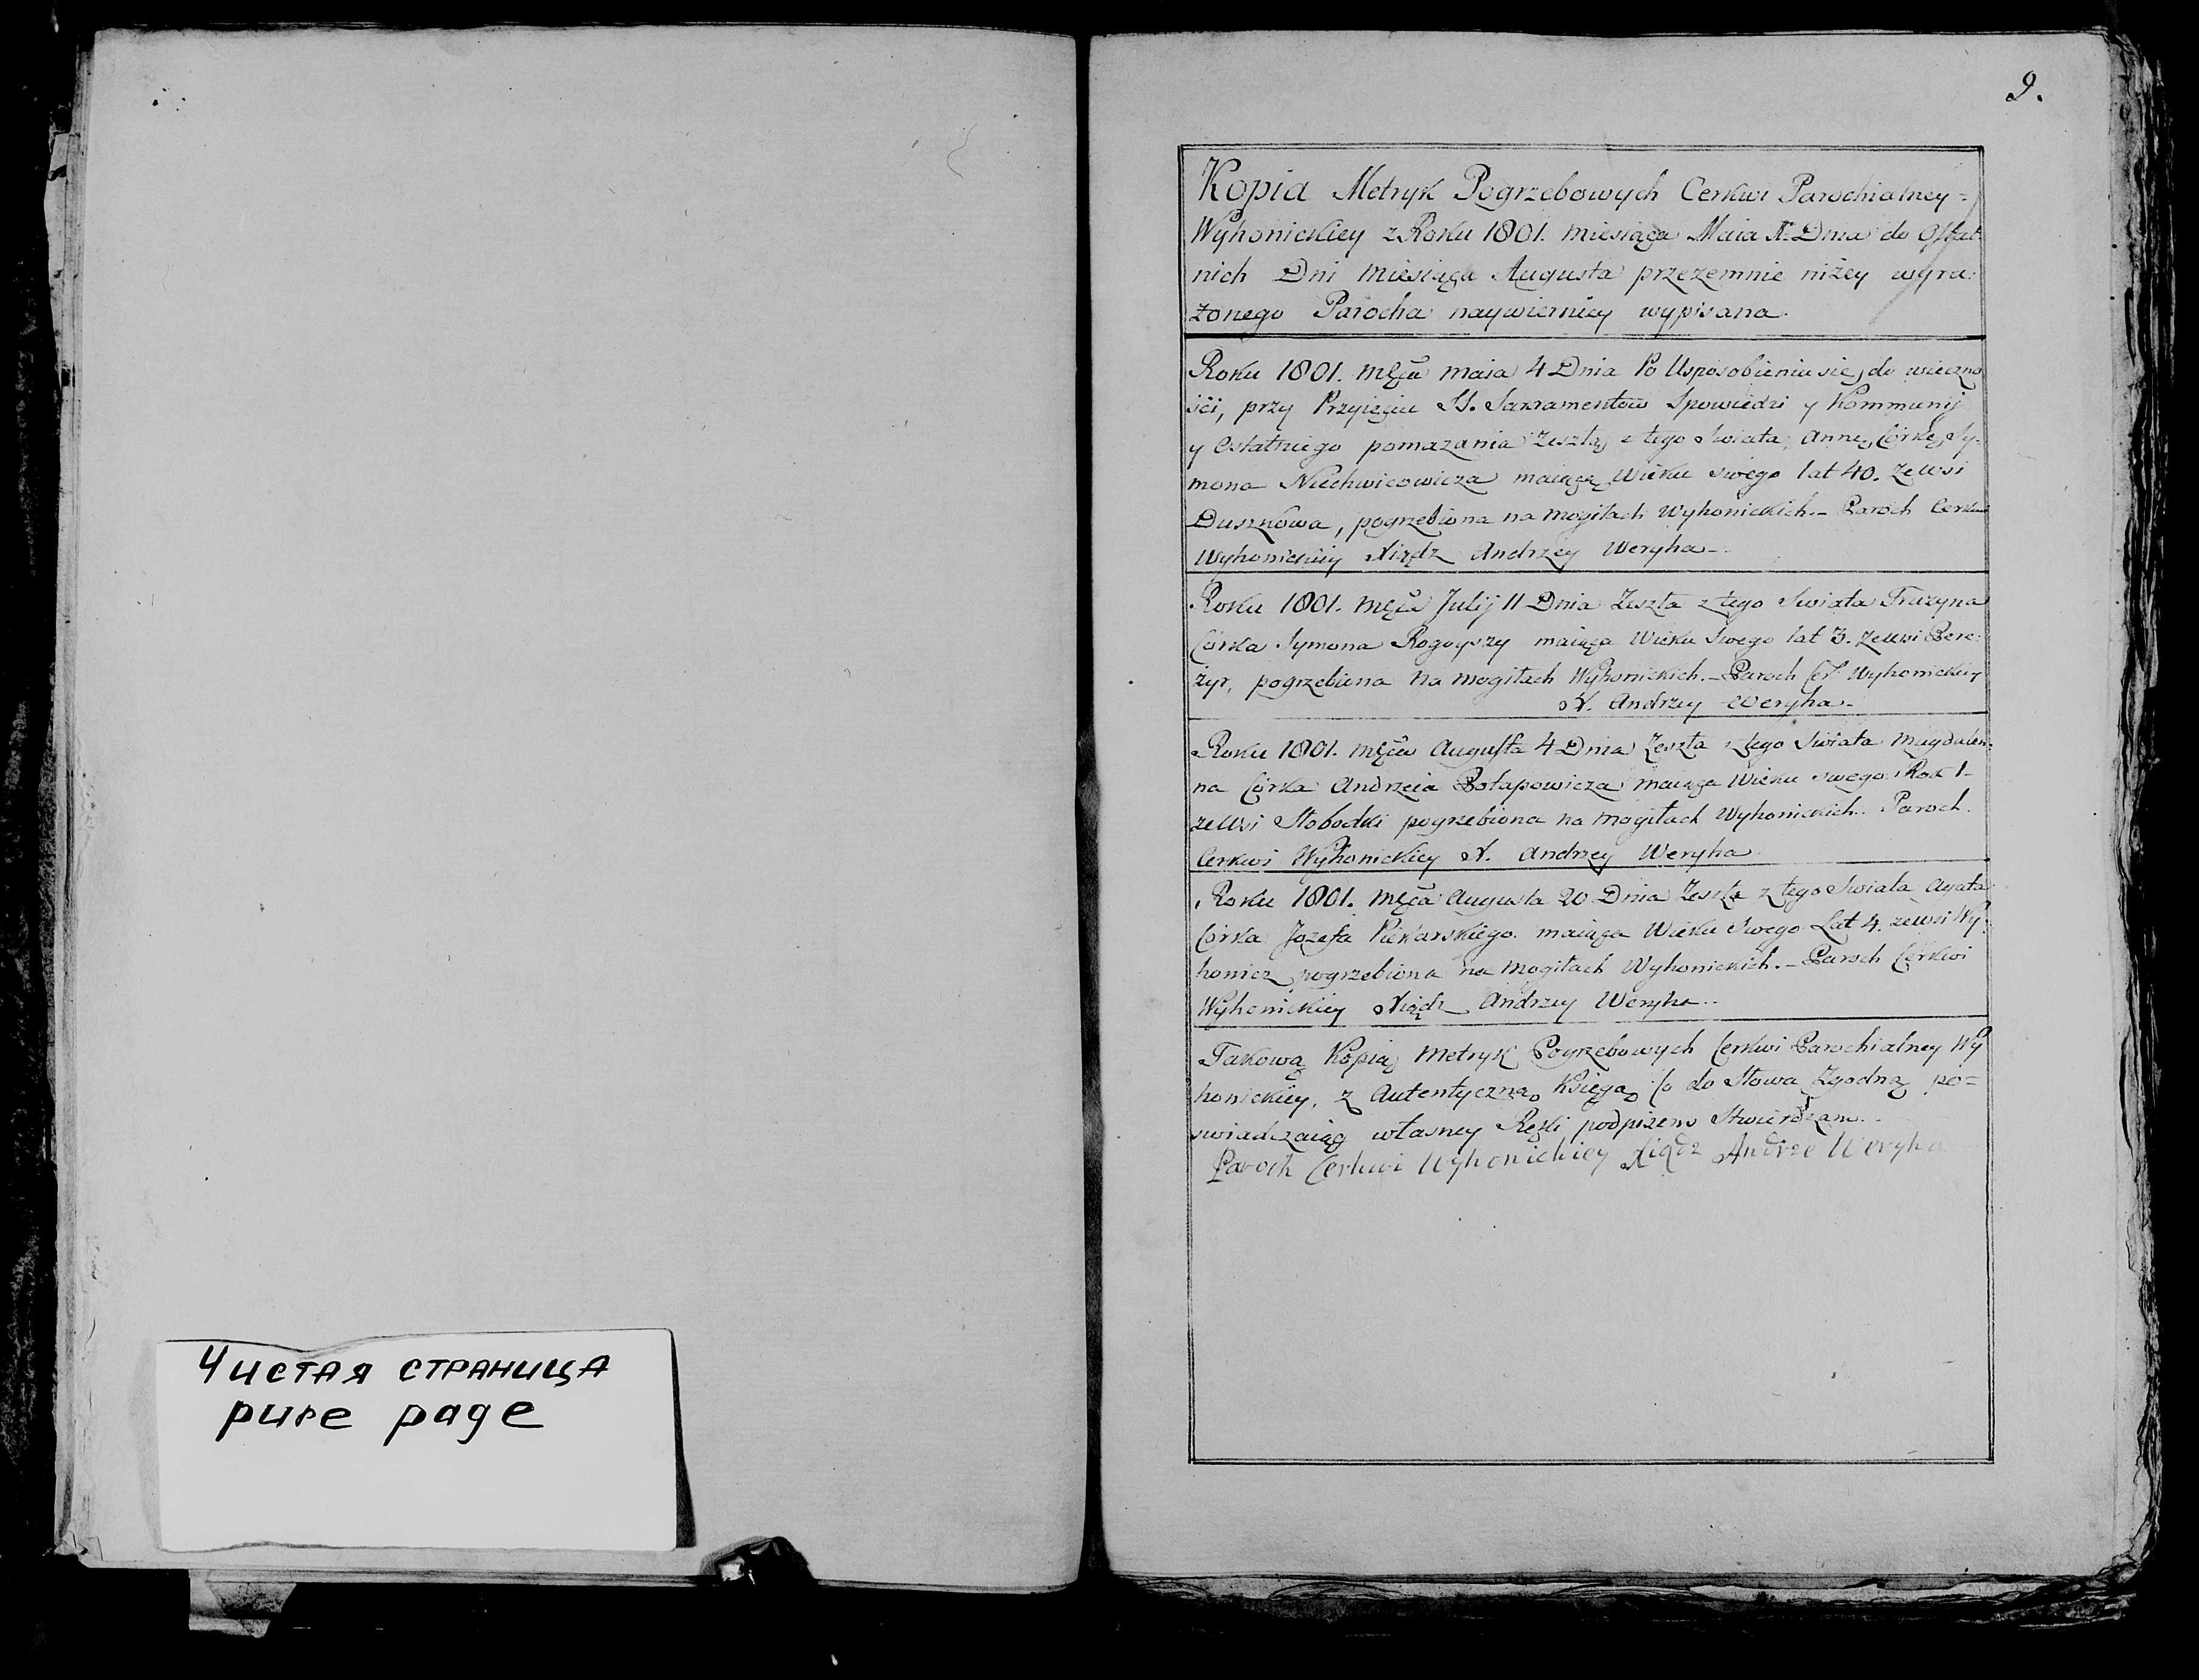 Чистая страница
pure page
9.
Kopia Metryk Pogrzebowych Cerkwi Parochialney =
Wyhonickiey z Roku 1801. miesiąca Maia Dnia do Ostat:
nich Dni miesiąca Augusta przezemnie niżey wyra:
żonego Parocha naywierniey wypisana.
Roku 1801. mĘca maia 4 Dnia Po Usposobieniu się do wieczno
ści, przy Przyięciu SS. Sakramentow Spowiedzi y Kommunij
y Ostatniego pomazania Zeszłą z tego Swiata, Annę Corkę Sy-
mona Niechwicowicza maiącą Wieku swego lat 40. ze wsi
Duszkowa, pogrzebiona na mogiłach Wyhonickich. – Paroch Cerkwi
Wyhonickiey Xiądz Andrzey Weryha –
Roku 1801. mĘca Julij 11 Dnia Zeszła z tego Swiata Fruzyna
Corka Symona Rogoyszy maiąca Wieku Swego lat 3. ze wsi Bere:
żyr, pogrzebiona na mogiłach Wyhonickich. – Paroch Cer. Wyhonickiey
X. Andrzey Weryha –
Roku 1801. mĘca Augusta 4 Dnia Zeszła z tego Swiata Magdalen:
na Corka Andrzeia Potapowicza maiąca Wieku swego Rok 1 –
ze Wsi Słobodki pogrzebiona na mogiłach Wyhonickich. Paroch
Cerkwi Wyhonickiey X. Andrzey Weryha
Roku 1801. mĘca Augusta 20 Dnia Zeszła z tego Swiata Agata
Corka Jozefa Piekarskiego maiąca Wieku Swego Lat 4. ze wsi Wy:
honicz pogrzebiona na mogiłach Wyhonickich. – Paroch Cerkwi
Wyhonickiey Xiądz Andrzey Weryha..
Takową Kopią Metryk Pogrzebowych Cerkwi Parochialney Wy
honickiey, z Autentyczną Księgą Co do Słowa Zgodną po=
swiadczaiąc własney Ręki podpisem Stwierdzam..
Paroch Cerkwi Wyhonickiey Xiądz Andrze Weryha